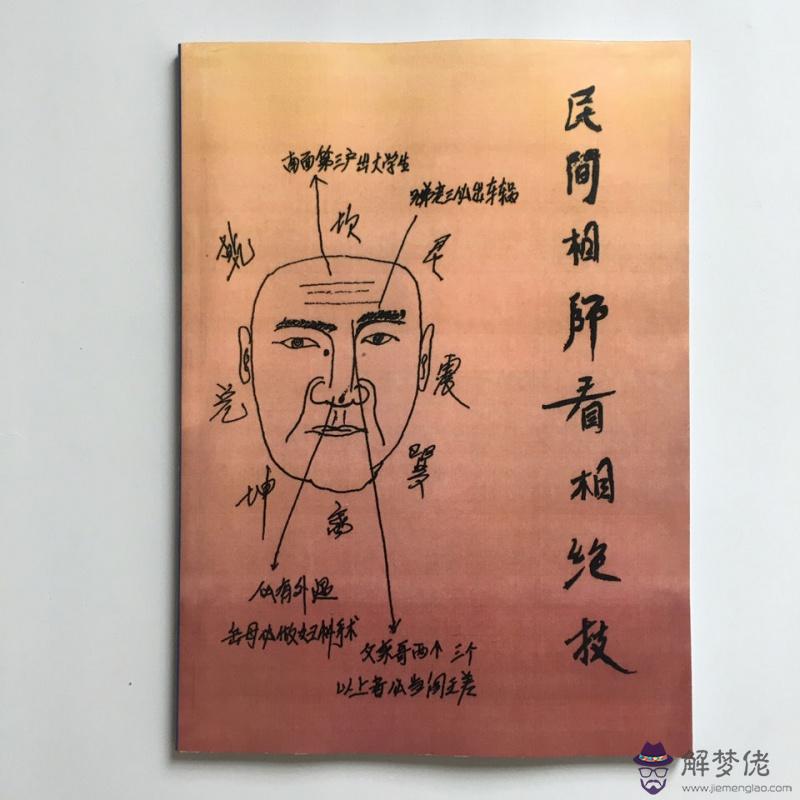 民间相師看相绝技
南面第三户出大学生
兄弟老三必出车祸
乾
坎
艮
兑
震
坤
离
巽
必有外遇
岳母必做妇科手术
父亲哥两个 三个
以上者必
解梦佬
www.jiemenglao.com